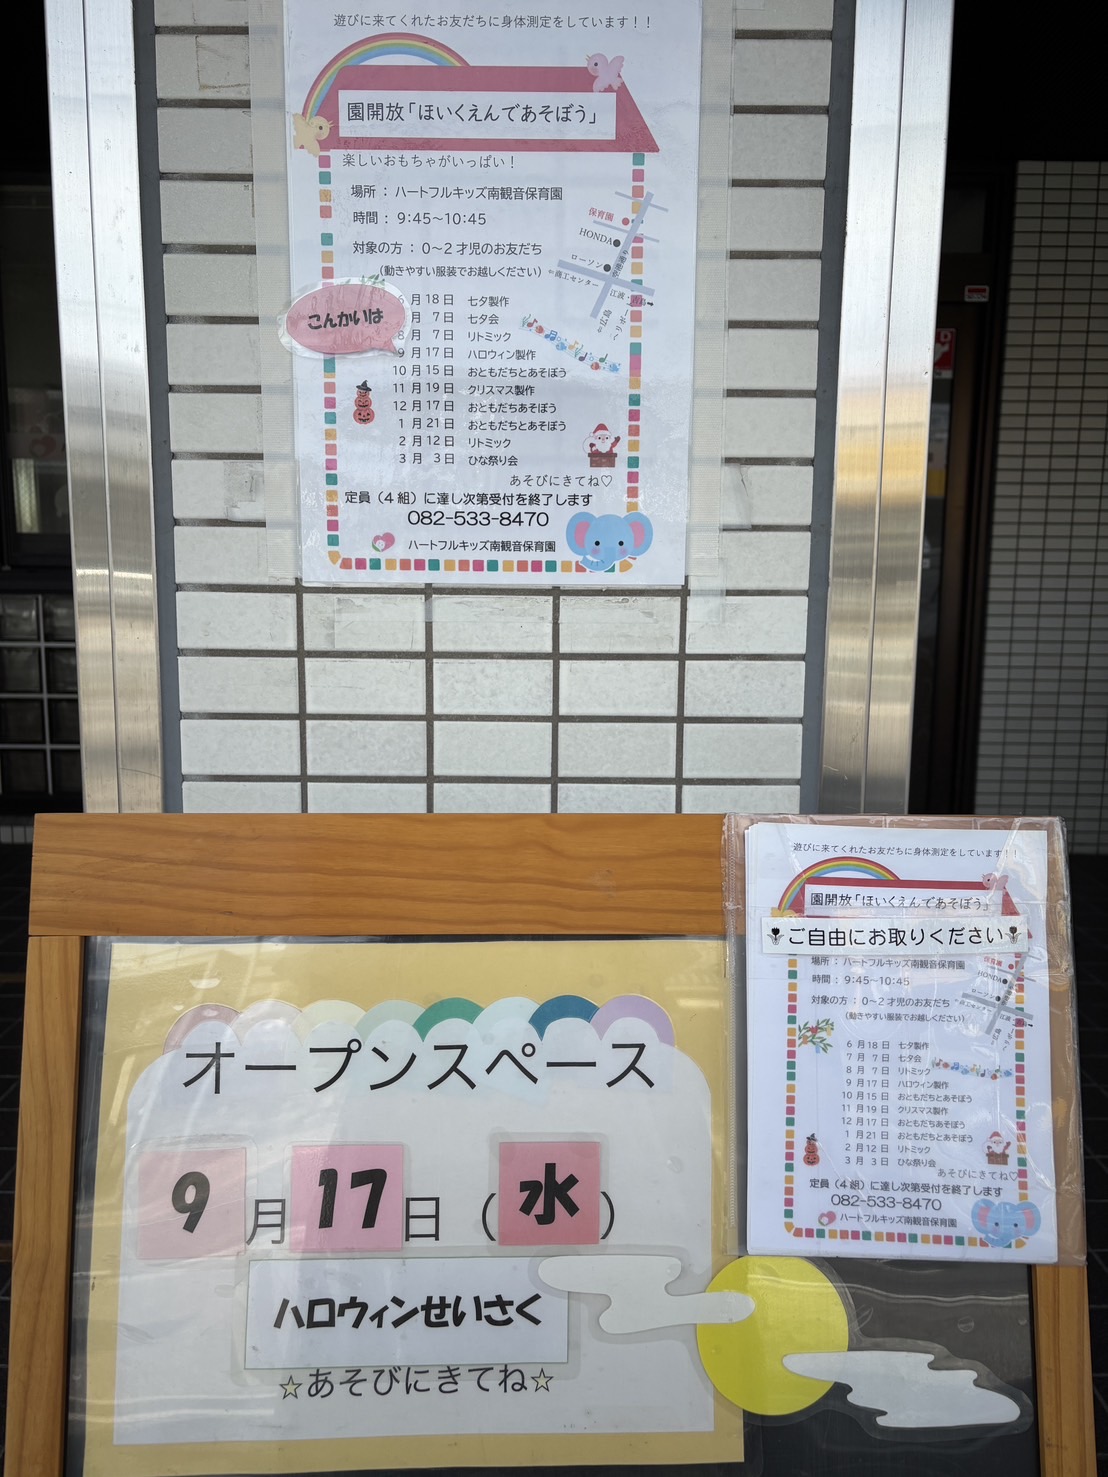 遊びに来てくれたお友だちに身体測定をしています！！
園開放「ほいくえんであそぼう」
楽しいおもちゃがいっぱい！
場所：ハートフルキッズ南観音保育園
時間：9:45～10:45
対象の方：0～2才児のお友だち
（動きやすい服装でお越しください）
保育園
HONDA
ローソン
⇐商工センター
こんかいは
6月18日 七夕製作
月 7日 七夕会
8月 7日 リトミック
9月17日 ハロウィン製作
10月15日 おともだちとあそぼう
11月19日 クリスマス製作
12月17日 おともだちあそぼう
1月21日 おともだちとあそぼう
2月12日 リトミック
3月 3日 ひな祭り会
あそびにきてね♡
定員（4組）に達し次第受付を終了します
082-533-8470
ハートフルキッズ南観音保育園
遊びに来てくれたお友だちに身体測定をしています！！
園開放「ほいくえんであそぼう」
ご自由にお取りください
場所：ハートフルキッズ南観音保育園
時間：9:45～10:45
対象の方：0～2才児のお友だち
（動きやすい服装でお越しください）
保育園
HONDA
ローソン
6月18日 七夕製作
7月 7日 七夕会
8月 7日 リトミック
9月17日 ハロウィン製作
10月15日 おともだちとあそぼう
11月19日 クリスマス製作
12月17日 おともだちあそぼう
1月21日 おともだちとあそぼう
2月12日 リトミック
3月 3日 ひな祭り会
あそびにきてね♡
定員（4組）に達し次第受付を終了します
082-533-8470
ハートフルキッズ南観音保育園
オープンスペース
9月17日（水）
ハロウィンせいさく
☆あそびにきてね☆